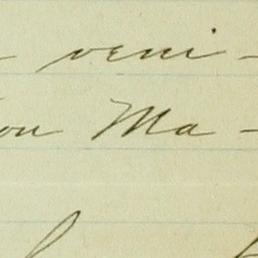 veni-
ou Ma-